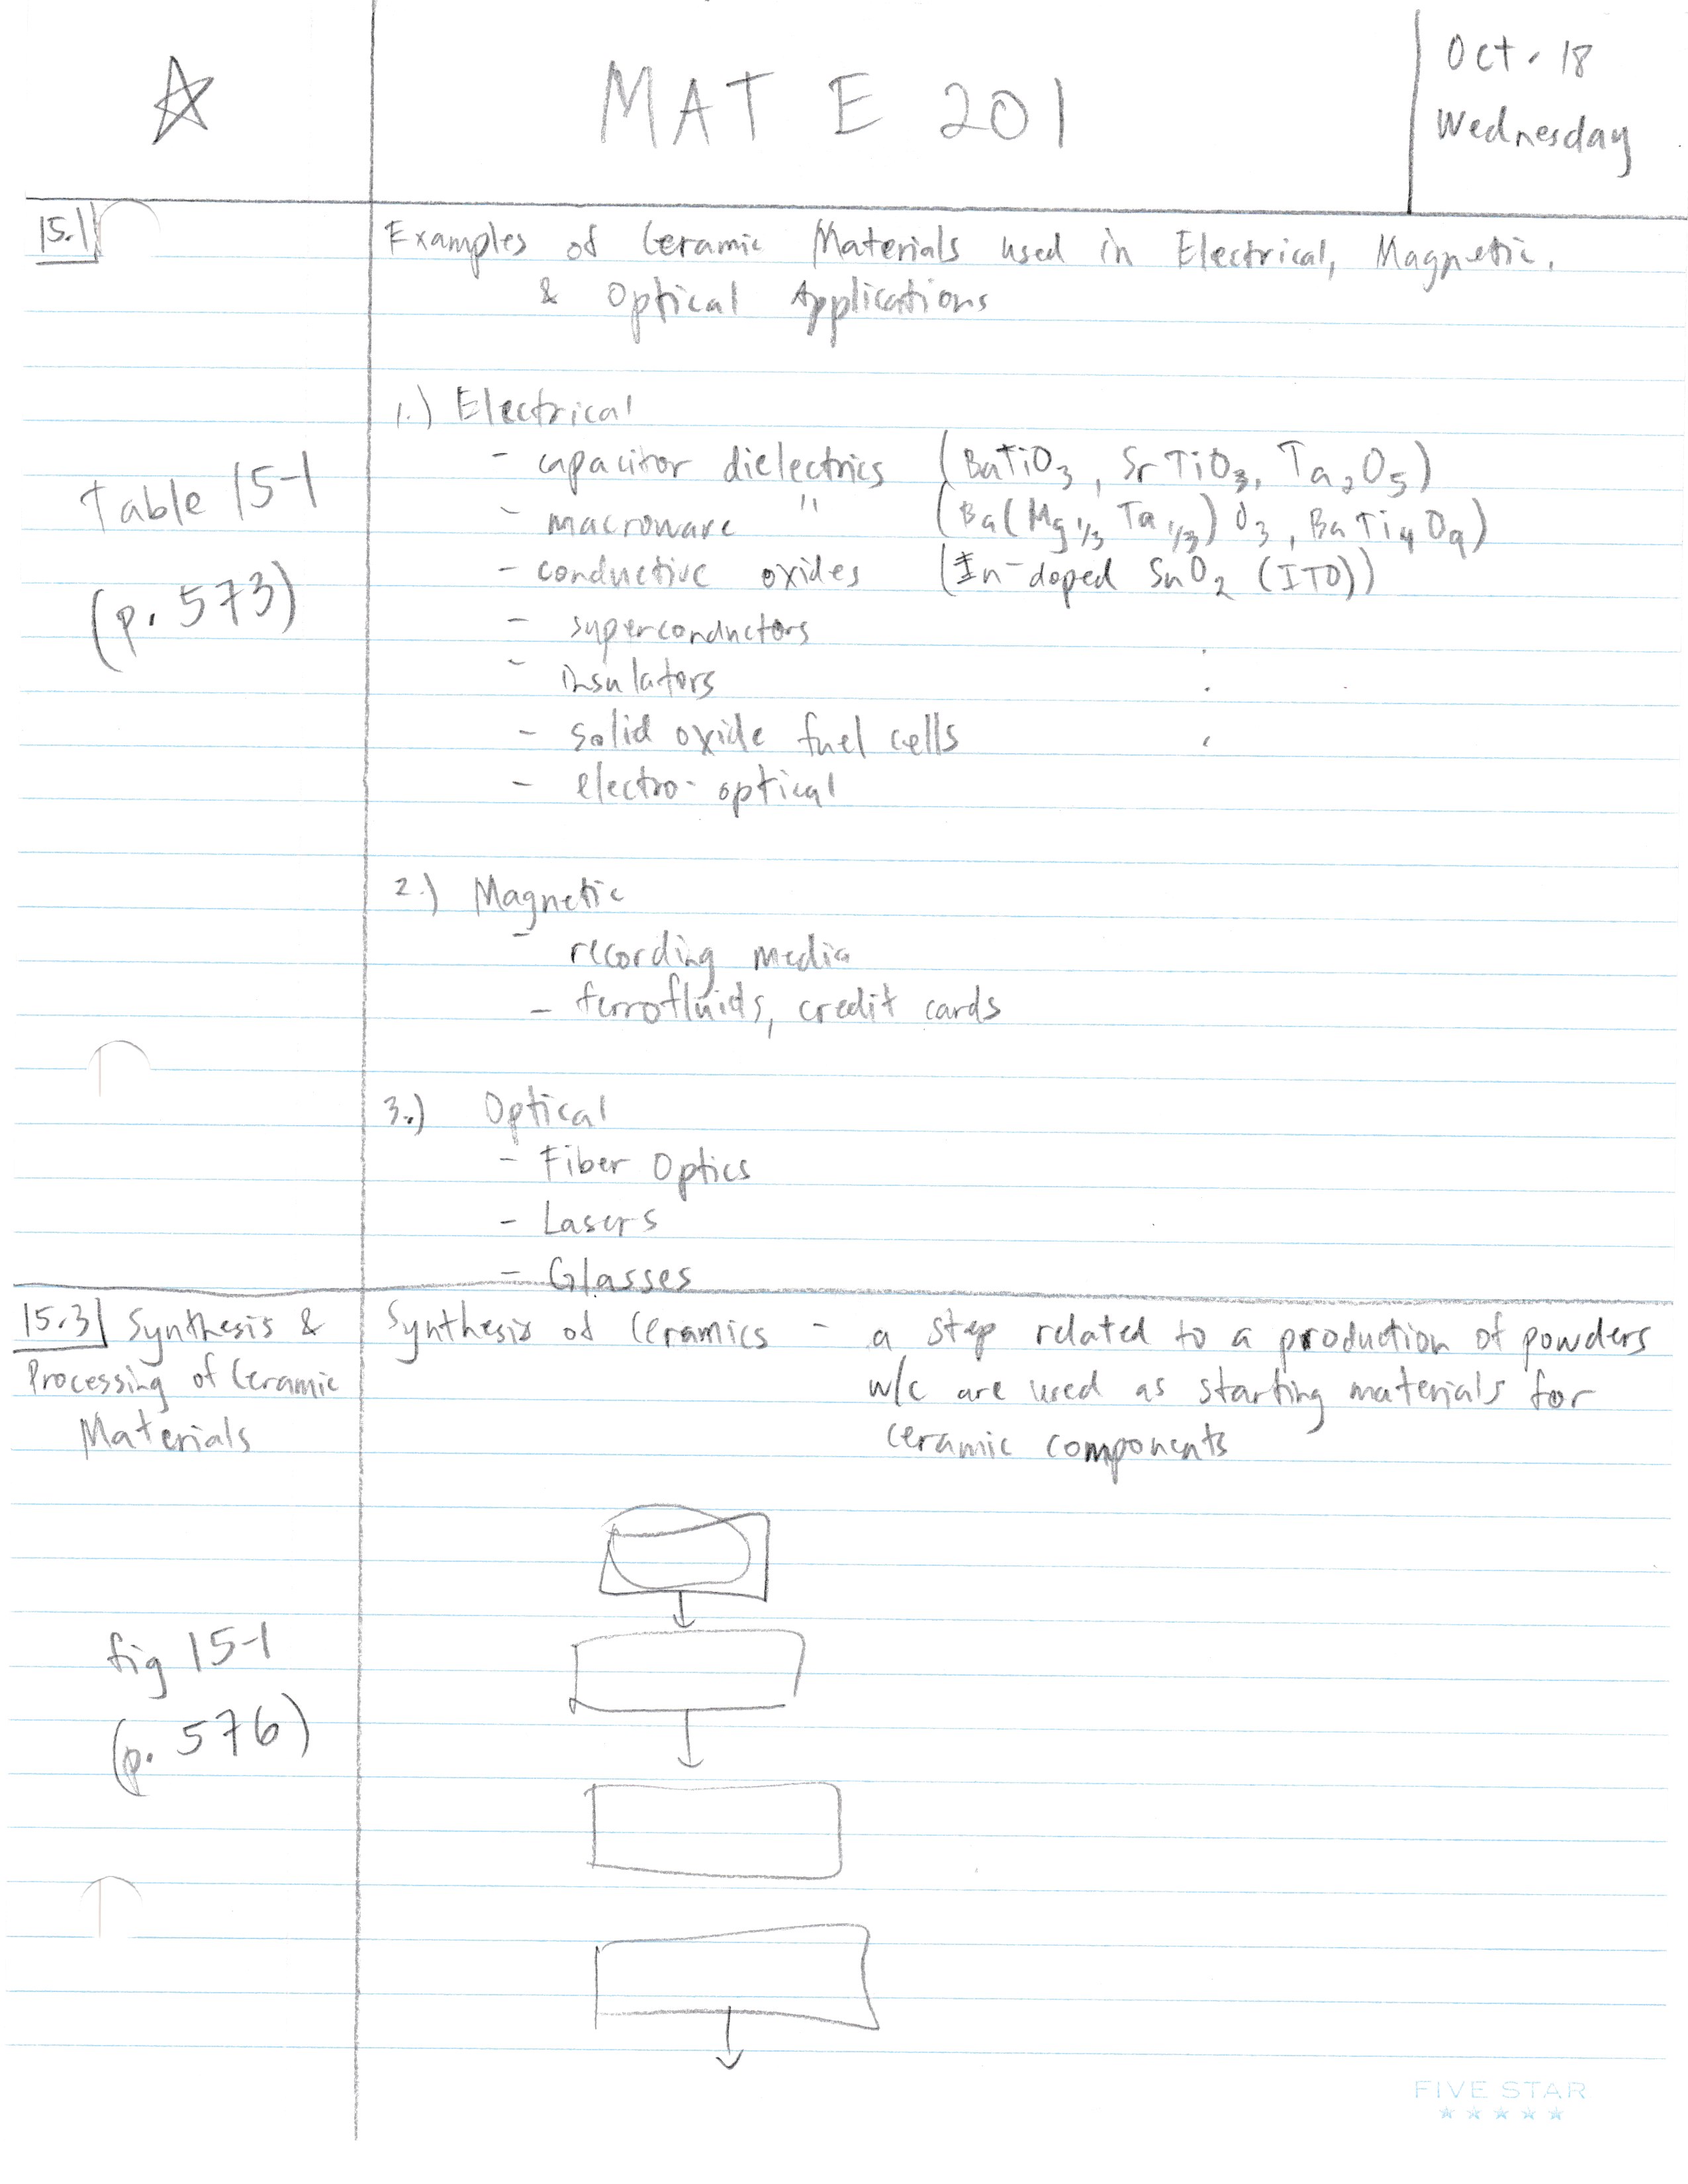 MAT E 201
Oct. 18
Wednesday
15.1
Examples of Ceramic Materials used in Electrical, Magnetic,
& Optical Applications
1.) Electrical
- capacitor dielectrics (BaTiO3, SrTiO3, Ta2O5)
- macroware " (Ba(Mg1/3 Ta1/3)O3, BaTi4O9)
- conductive oxides (In-doped SnO2 (ITO))
- superconductors
- insulators
- solid oxide fuel cells
- electro-optical
Table 15-1
(p. 573)
2.) Magnetic
- recording media
- ferrofluids, credit cards
3.) Optical
- Fiber Optics
- Lasers
- Glasses
15.3 Synthesis &
Processing of Ceramic
Materials
Synthesis of Ceramics - a step related to a production of powders
w/c are used as starting materials for
ceramic components
fig 15-1
(p. 576)
FIVE STAR